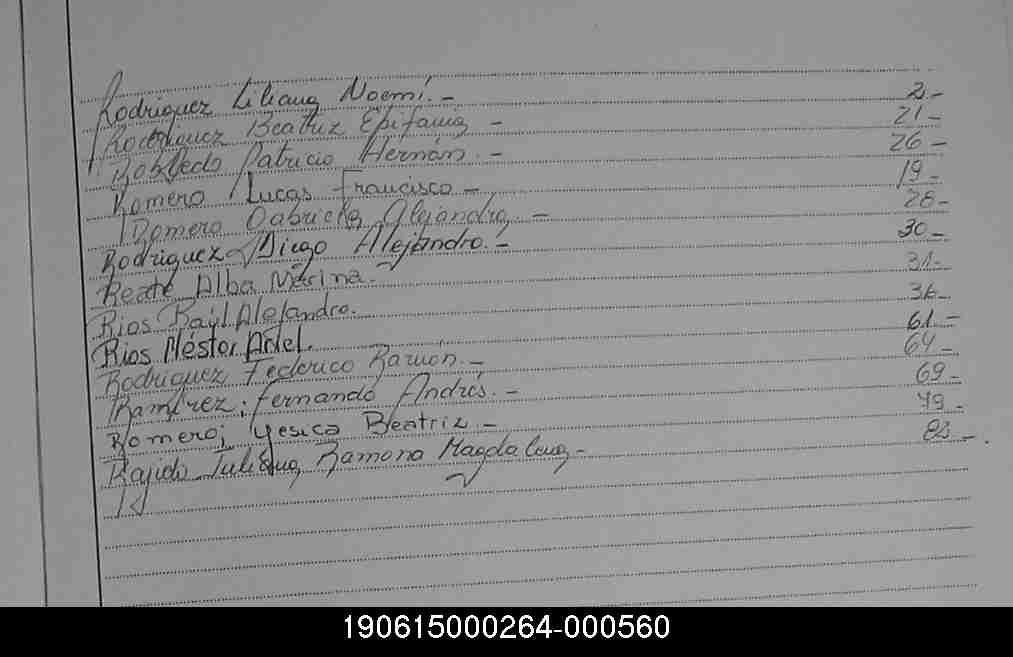 Rodriguez Liliana Noemí.- 2-
Rodriguez Beatriz Epifania - 21-
Robledo Patricio Hernán.- 26-
Romero Lucas Francisco - 19-
Romero Gabriela Alejandra - 28-
Rodriguez Diego Alejandro.- 30-
Reate Alba Marina.- 31-
Rios Raúl Alejandro. 36-
Rios Néstor Ariel. 61-
Rodriguez Federico Ramón.- 64-
Ramirez; Fernando Andrés.- 69-
Romero; Yesica Beatriz - 79-
Juliana Ramona Magdalena-
190615000264-000560